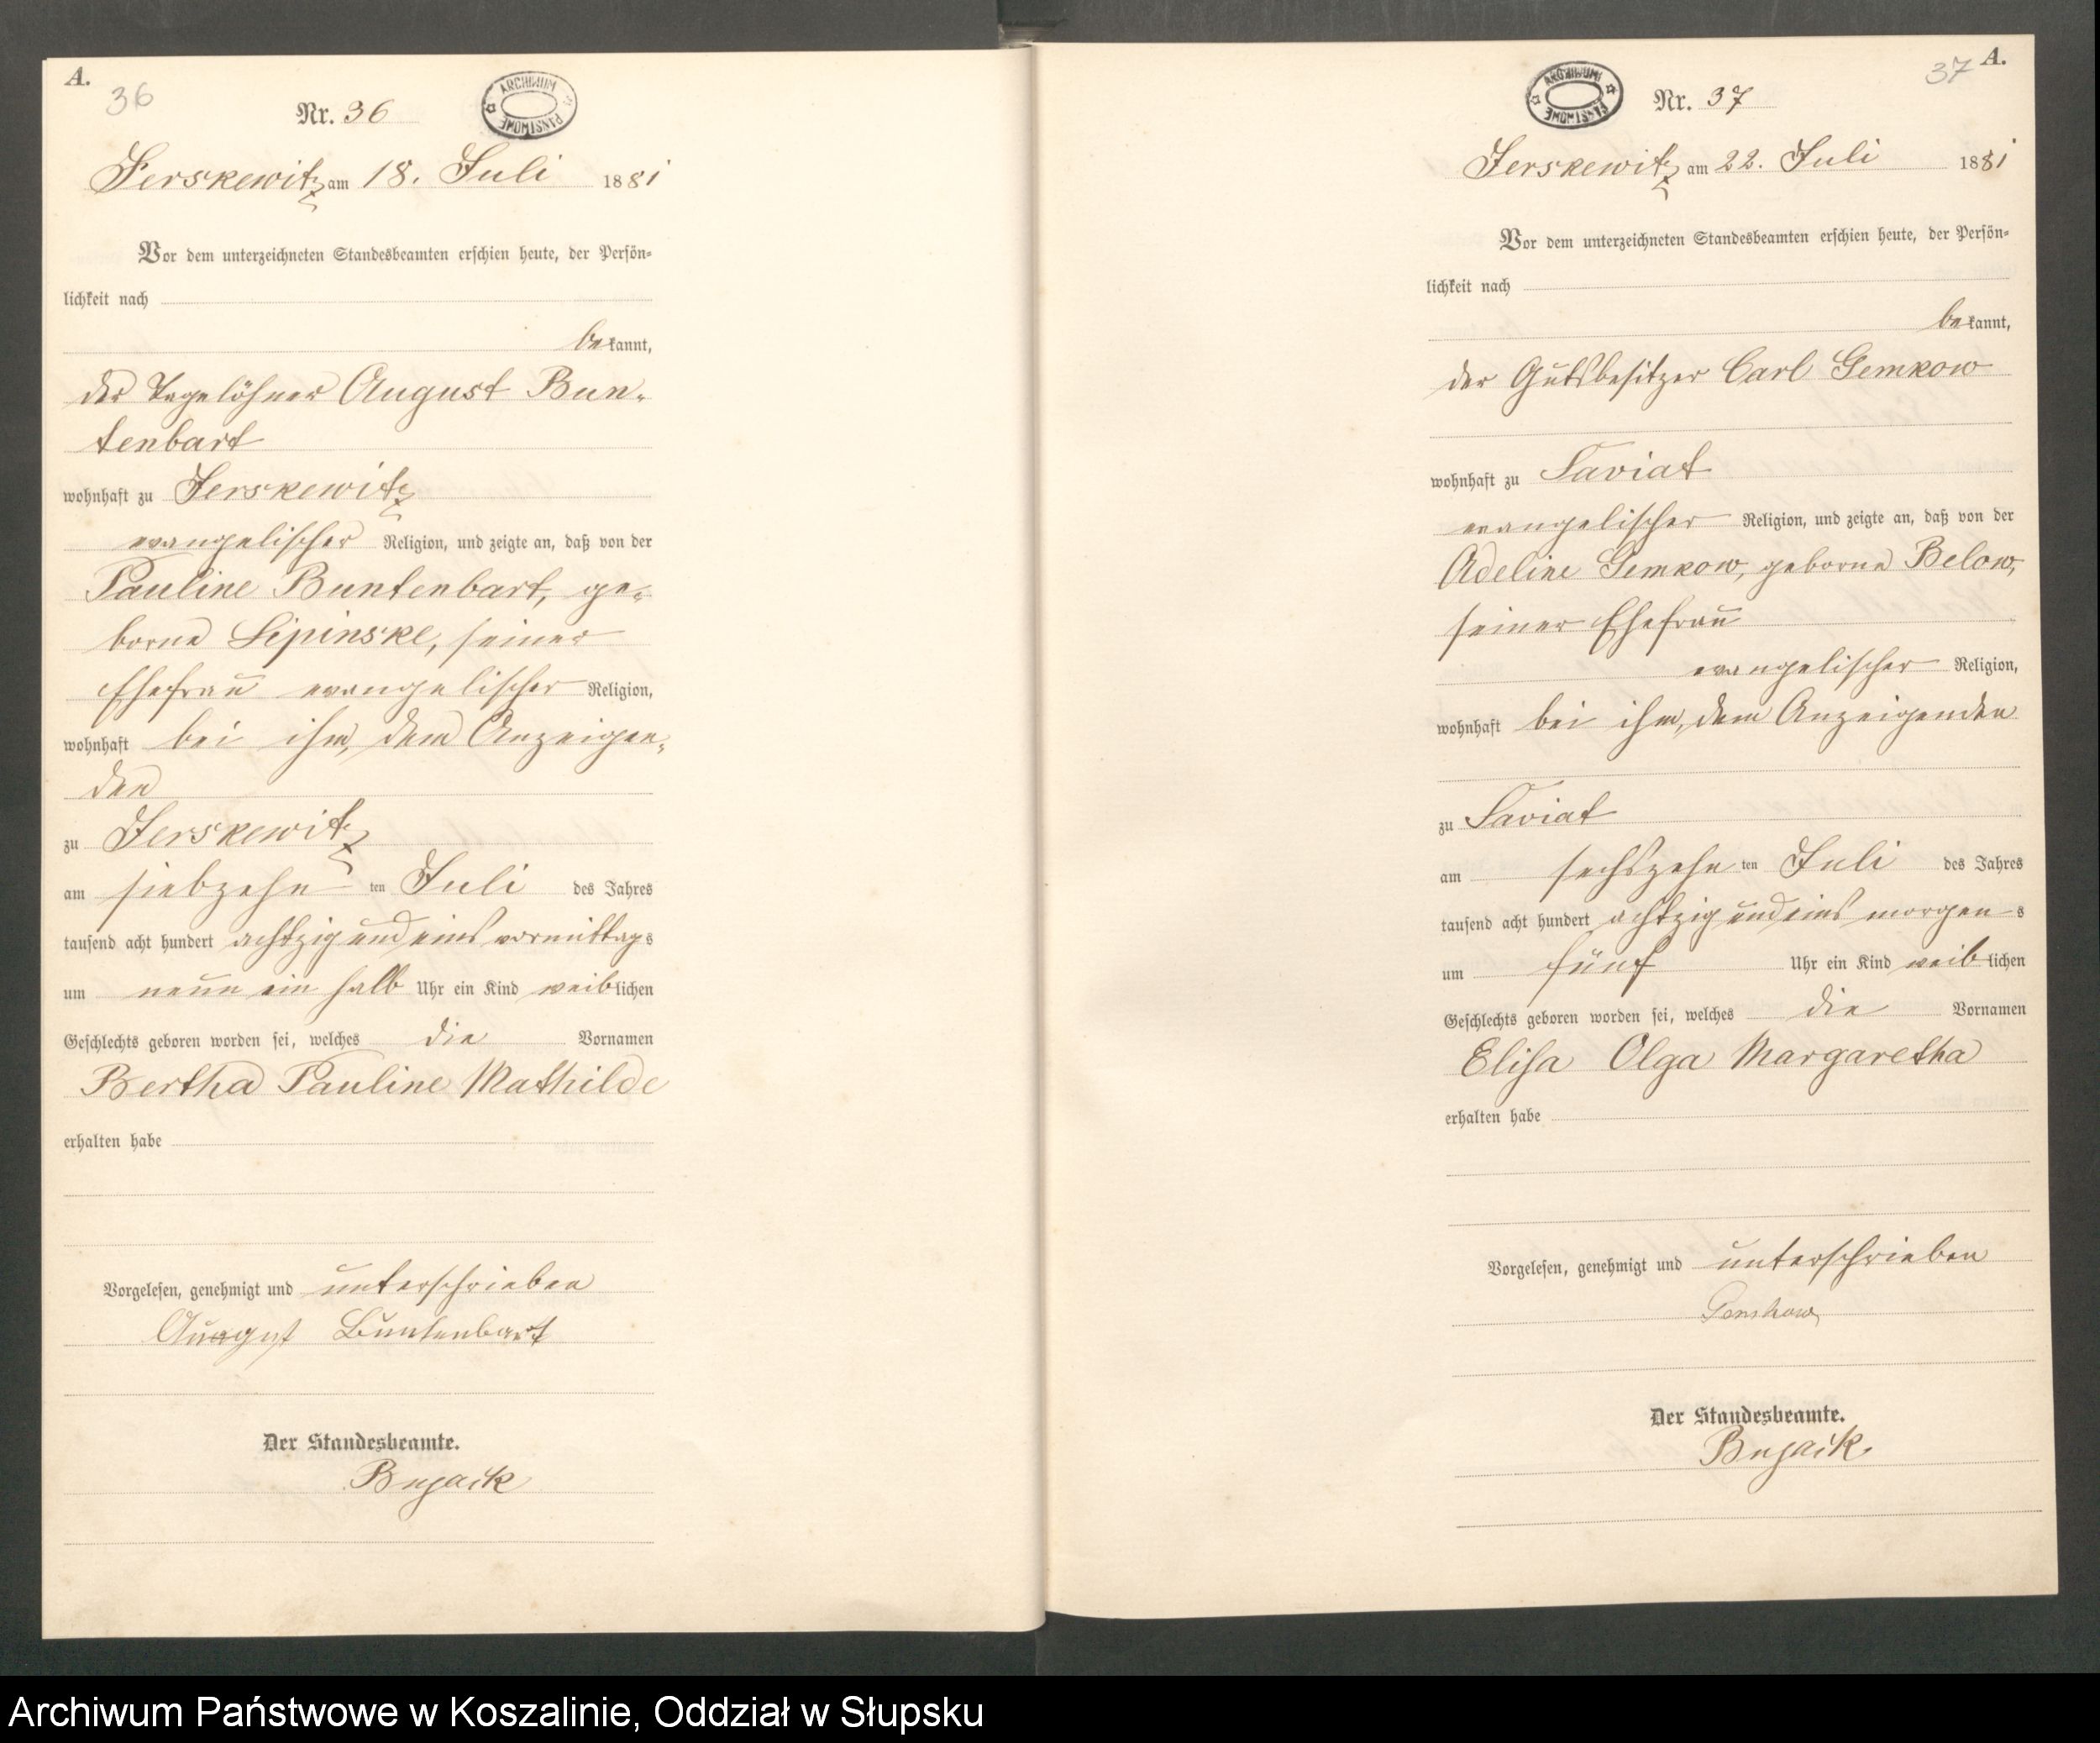 A.
36
Nr. 36
ARCHIWUM PAŃSTWOWE
Jerskewitz am 18. Juli 1881
Vor dem unterzeichneten Standesbeamten erschien heute, der Persön-
lichkeit nach
bekannt,
der Tagelöhner August Bun-
tenbart
wohnhaft zu Jerskewitz
evangelischer Religion, und zeigte an, daß von der
Pauline Buntenbart, ge-
borne Lipinske, seiner
Ehefrau evangelischer Religion,
wohnhaft bei ihm, dem Anzeigen-
den
zu Jerskewitz
am siebzehnten Juli des Jahres
tausend acht hundert achtzig und eins vormittags
um neun ein halb Uhr ein Kind weiblichen
Geschlechts geboren worden sei, welches die Vornamen
Bertha Pauline Mathilde
erhalten habe
Vorgelesen, genehmigt und unterschrieben
August Buntenbart
Der Standesbeamte.
Bujack
37 A.
ARCHIWUM PAŃSTWOWE
Nr. 37
Jerskewitz am 22. Juli 1881
Vor dem unterzeichneten Standesbeamten erschien heute, der Persön-
lichkeit nach
bekannt,
der Gutsbesitzer Carl Gemkow
wohnhaft zu Saviat
evangelischer Religion, und zeigte an, daß von der
Adeline Gemkow, geborne Below,
seiner Ehefrau
evangelischer Religion,
wohnhaft bei ihm, dem Anzeigenden
zu Saviat
am sechszehnten Juli des Jahres
tausend acht hundert achtzig und eins morgens
um fünf Uhr ein Kind weiblichen
Geschlechts geboren worden sei, welches die Vornamen
Elisa Olga Margaretha
erhalten habe
Vorgelesen, genehmigt und unterschrieben
Gemkow
Der Standesbeamte.
Bujack.
Archiwum Państwowe w Koszalinie, Oddział w Słupsku